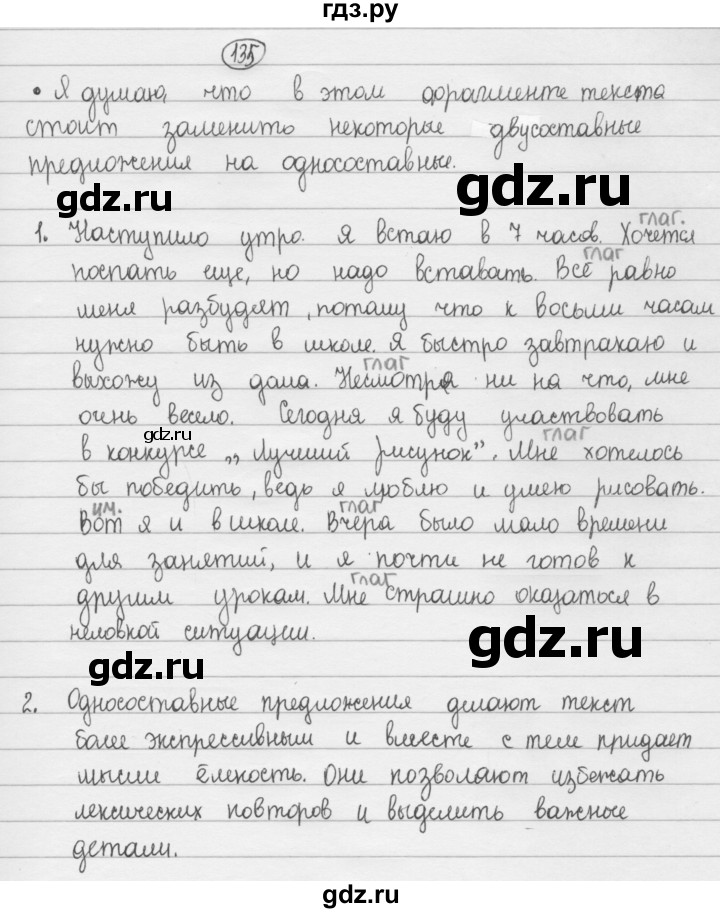 гдз.ру
135
• Я думаю, что в этом фрагменте текста
стоит заменить некоторые двусоставные
предложения на односоставные.
gdz.ru
gdz.ru
глаг.
1. Наступило утро. Я встаю в 7 часов. Хочется
глаг
поспать еще, но надо вставать. Всё равно
меня разбудят, потому что к восьми часам
нужно быть в школе. Я быстро завтракаю и
глаг
выхожу из дома. Несмотря ни на что, мне
очень весело. Сегодня я буду участвовать
gdz.ru
глаг
в конкурсе „Лучший рисунок". Мне хотелось
бы победить, ведь я люблю и умею рисовать.
им. глаг
Вот я и в школе. Вчера было мало времени
для занятий, и я почти не готов к
глаг
другим урокам. Мне страшно оказаться в
неловкой ситуации.
gdz.ru
gdz.ru
2. Односоставные предложения делают текст
более экспрессивным и вместе с тем придает
мысли ёмкость. Они позволяют избежать
лексических повторов и выделить важные
детали.
gdz.ru